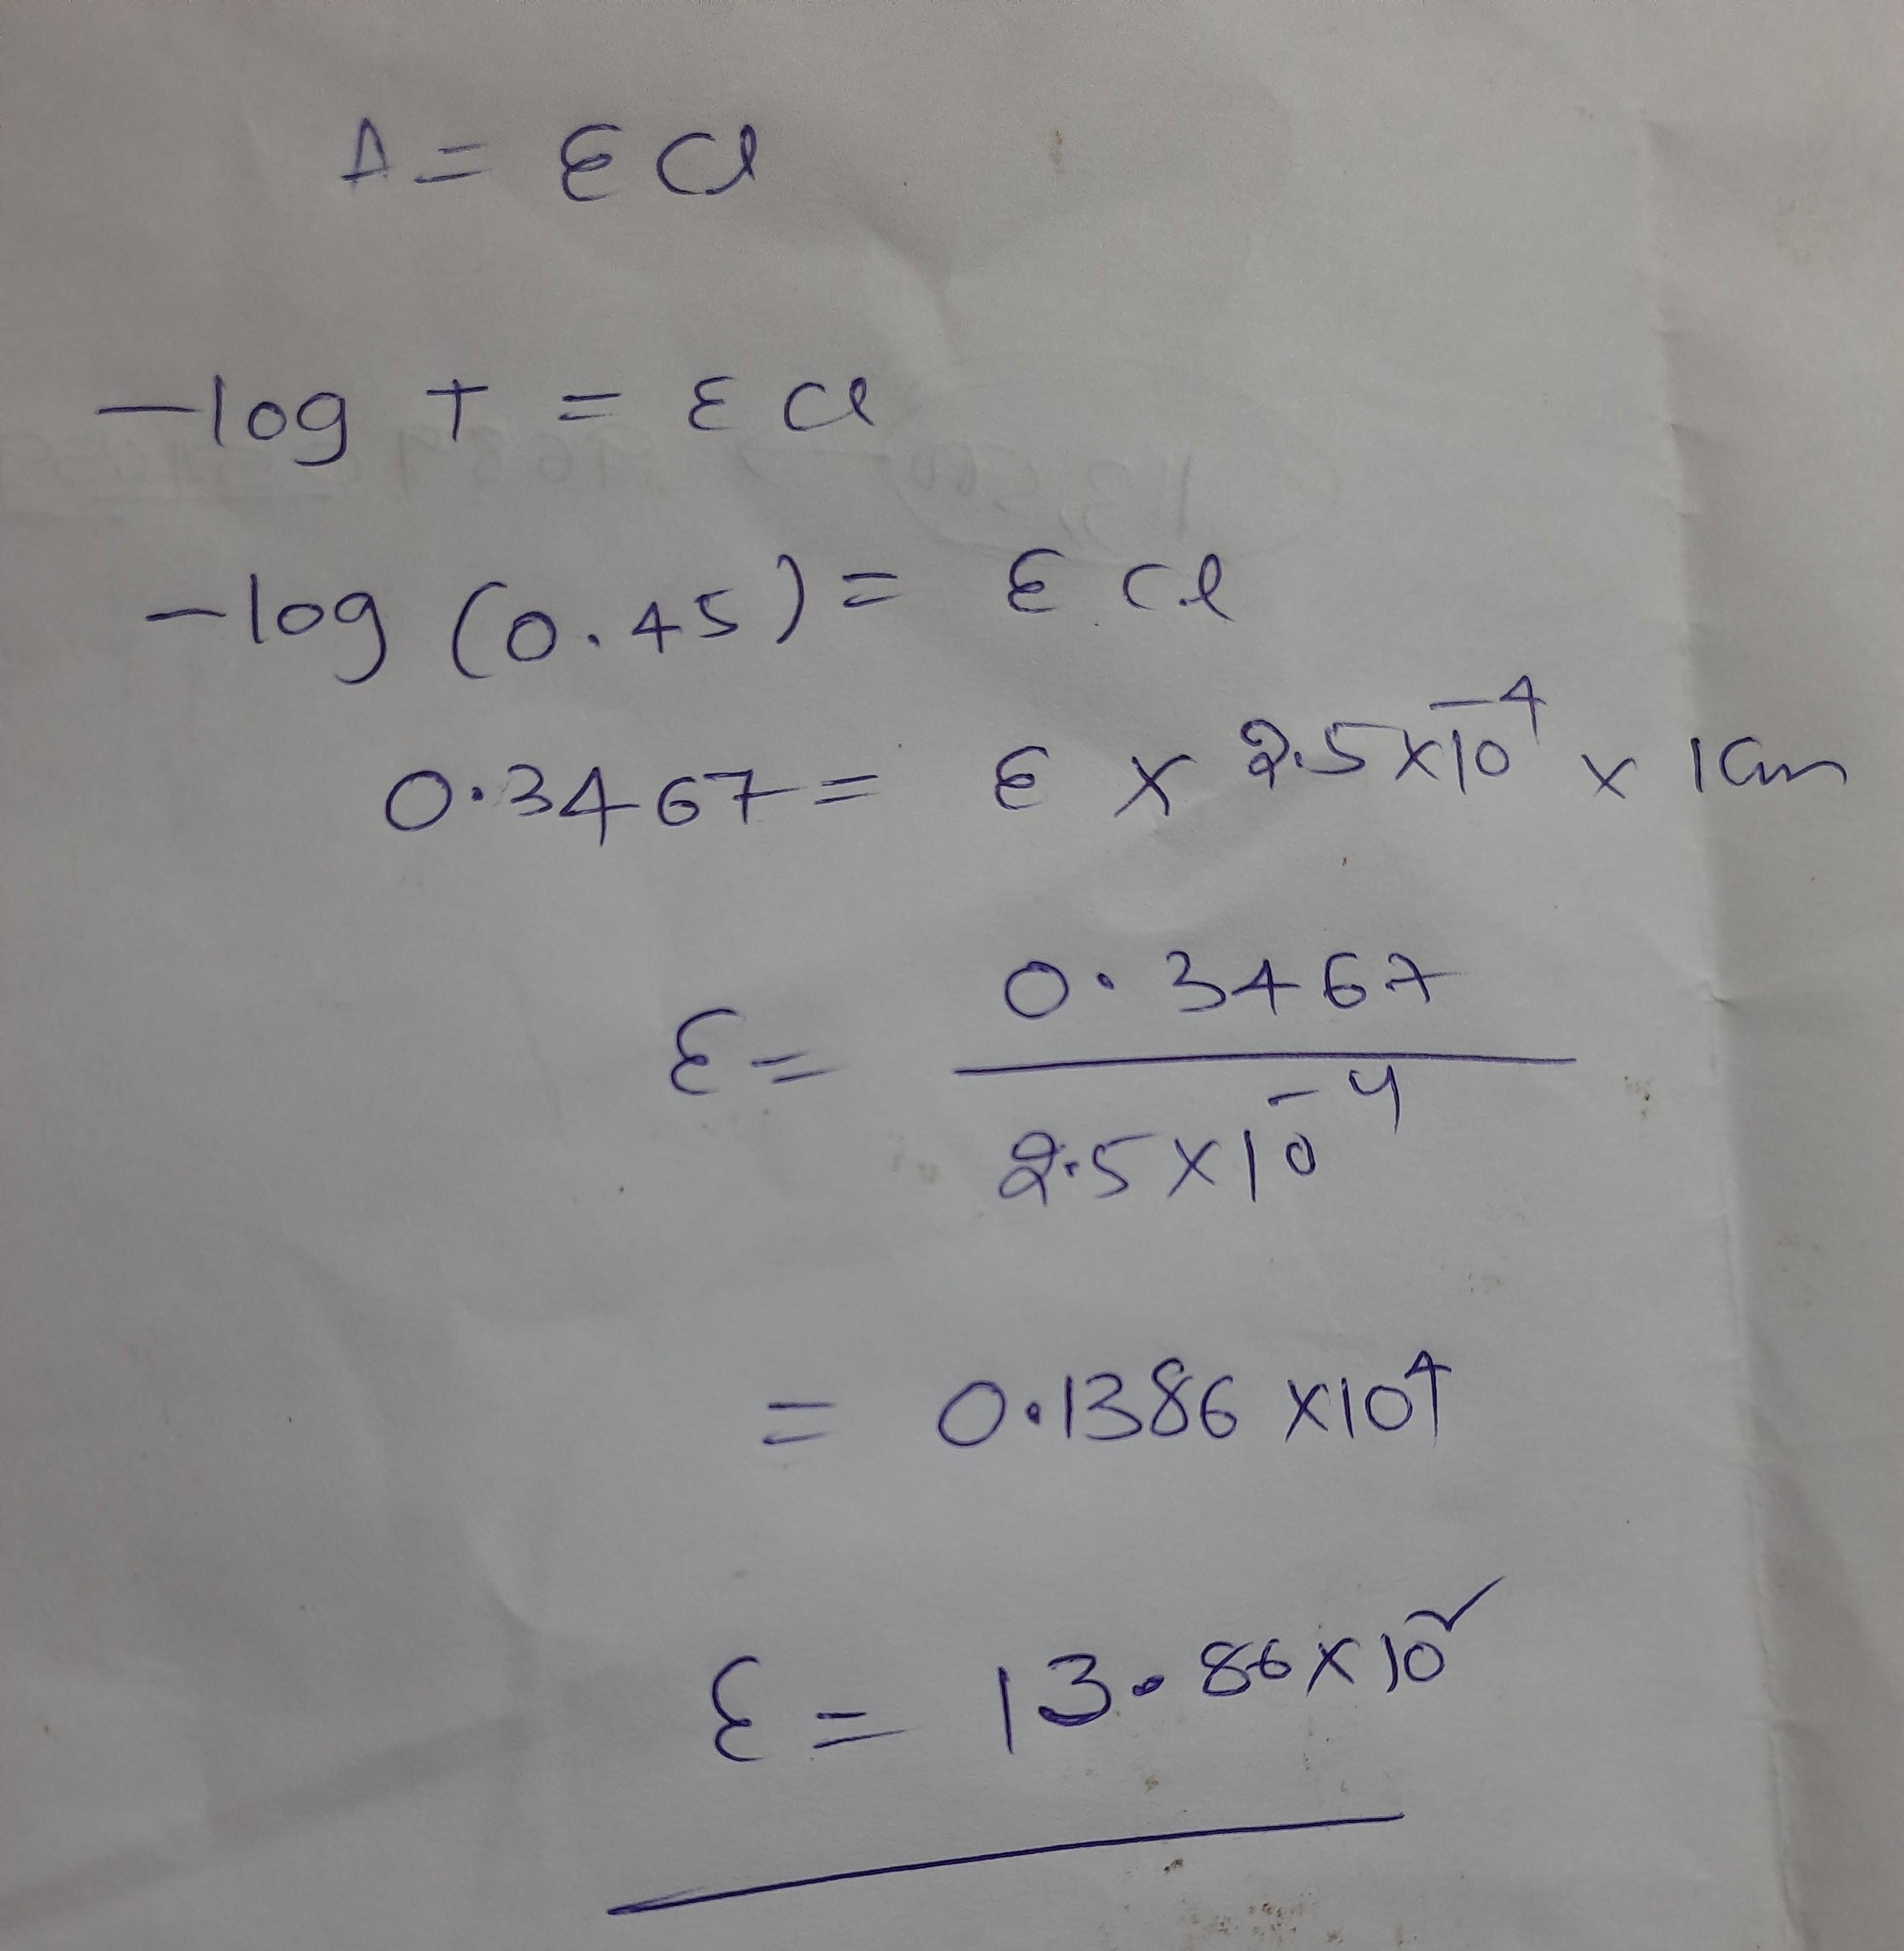 A = εcl
-log T = εcl
-log (0.45) = εcl
0.3467 = ε × 2.5×10⁻⁴ × 1cm
ε = 0.3467
2.5×10⁻⁴
= 0.1386 ×10⁴
ε = 13.86×10²